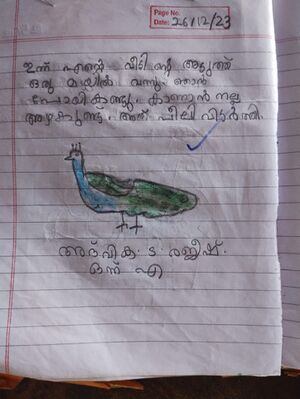 Page No.
Date: 26/12/23
ഇന്ന് എന്റെ വീടിന്റെ അടുത്ത്
ഒരു മയിൽ വന്നു. ഞാൻ
പോയി കണ്ടു. കാണാൻ നല്ല
അഴകുണ്ട്. അത് പീലി വിടർത്തി.
അദ്വിക. ടി. രജീഷ്.
ഒന്ന് എ